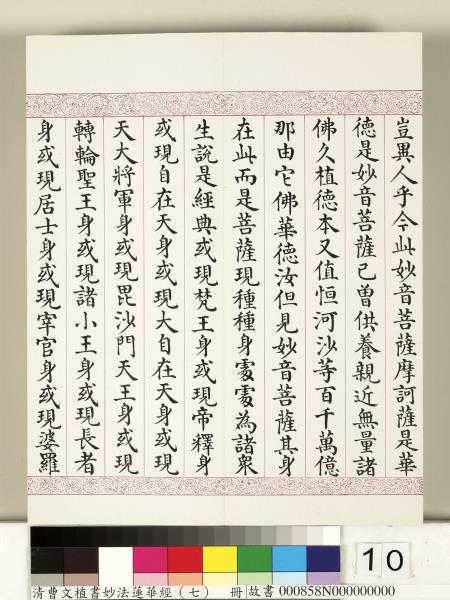 豈異人乎今此妙音菩薩摩訶薩是華
德是妙音菩薩已曾供養親近無量諸
佛久植德本又值恒河沙等百千萬億
那由它佛華德汝但見妙音菩薩其身
在此而是菩薩現種種身處處為諸衆
生說是經典或現梵王身或現帝釋身
或現自在天身或現大自在天身或現
天大將軍身或現毘沙門天王身或現
轉輪聖王身或現諸小王身或現長者
身或現居士身或現宰官身或現婆羅
10
清曹文植書妙法蓮華經（七） 冊 故書 000858N000000000